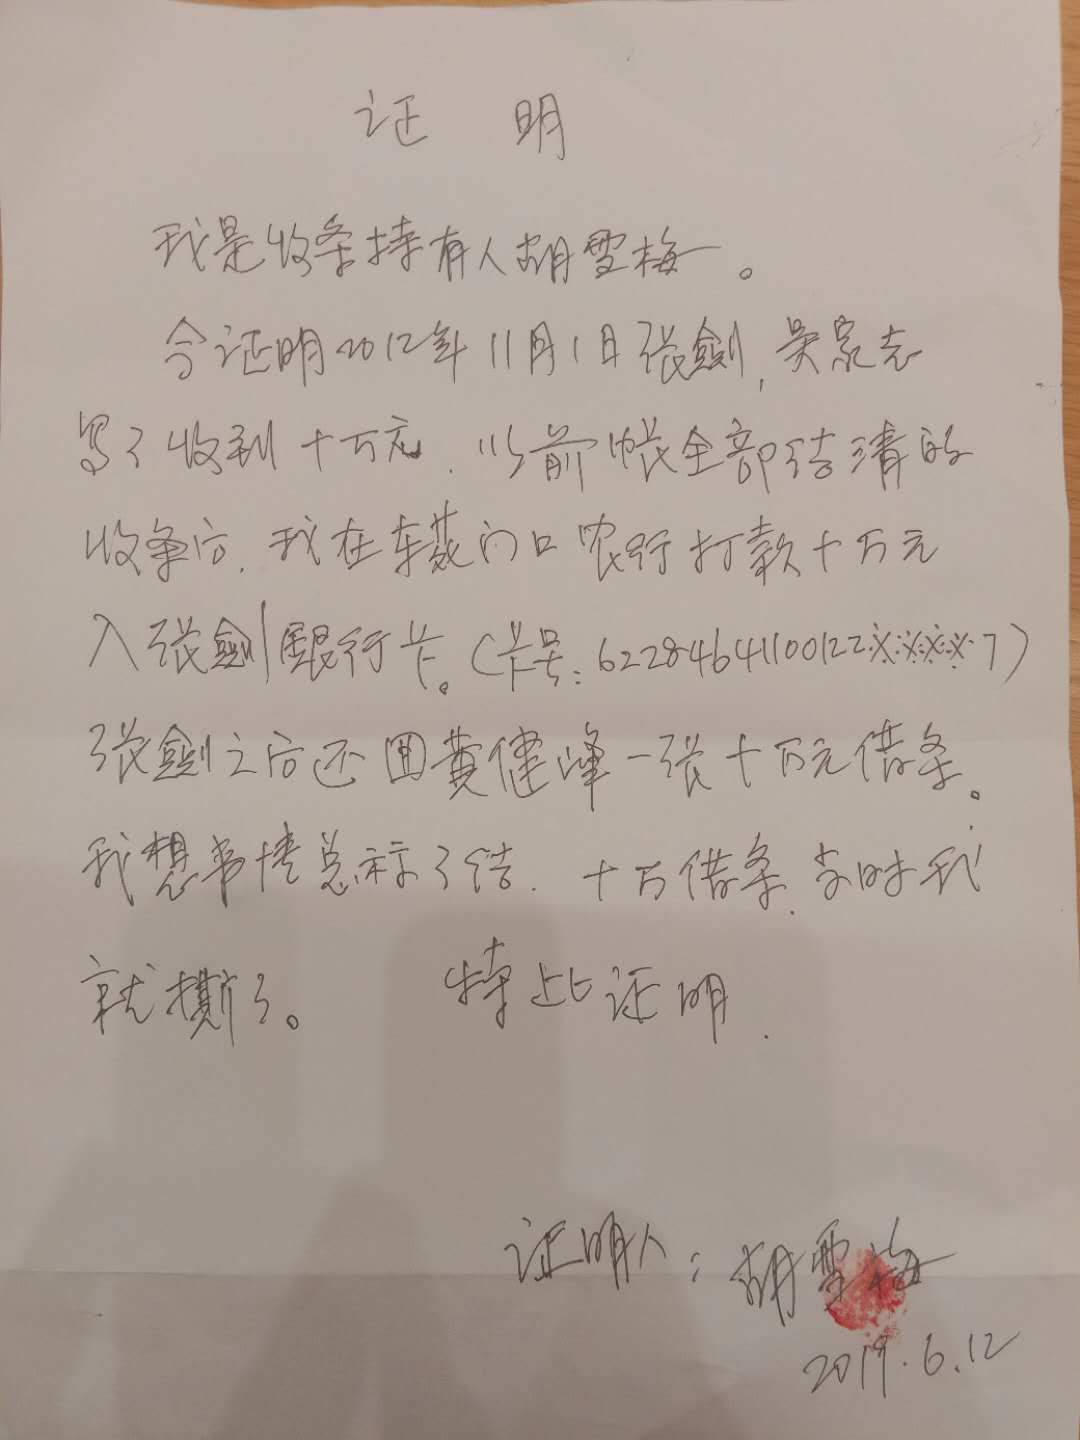 证 明
我是收条持有人胡雪梅。
今证明2012年11月1日张劍,吴家志
写了收到十万元,以前帐全部结清的
收条后,我在车巷门口农行打款十万元
入张劍银行卡。(卡号:62284641100122※※※※7)
张劍之后还回黄健峰一张十万元借条。
我想事情总算了结,十万借条,当时我
就撕了。 特此证明.
证明人:胡雪梅
2019.6.12